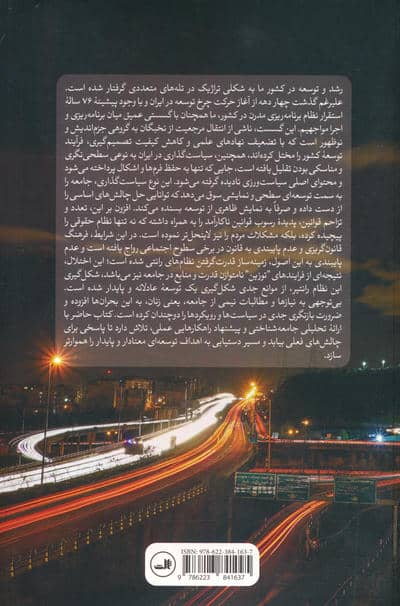 رشد و توسعه در کشور ما به شکلی تراژیک در تله‌های متعددی گرفتار شده است.
علیرغم گذشت چهار دهه از آغاز حرکت چرخ توسعه در ایران و با وجود پیشینهٔ ۷۶ سالهٔ
استقرار نظام برنامه‌ریزی مدرن در کشور، ما همچنان با گسستی عمیق میان برنامه‌ریزی و
اجرا مواجهیم. این گسست، ناشی از انتقال مرجعیت از نخبگان به گروهی جزم‌اندیش و
نوظهور است که با تضعیف نهادهای علمی و کاهش کیفیت تصمیم‌گیری، فرآیند
توسعهٔ کشور را مختل کرده‌اند. همچنین، سیاست‌گذاری در ایران به نوعی سطحی‌نگری
و مناسکی بودن تقلیل یافته است، جایی که تنها به حفظ فرم‌ها و اشکال پرداخته می‌شود
و محتوای اصلی سیاست‌ورزی نادیده گرفته می‌شود. این نوع سیاست‌گذاری، جامعه را
به سمت توسعه‌ای سطحی و نمایشی سوق می‌دهد که توانایی حل چالش‌های اساسی را
از دست داده و صرفاً به نمایش ظاهری از توسعه بسنده می‌کند. افزون بر این، تعدد و
تزاحم قوانین، پدیدهٔ رسوب قوانین ناکارآمد را به همراه داشته که نه تنها نظام حقوقی را
پیچیده کرده، بلکه مشکلات مردم را نیز لاینحل‌تر نموده است. در این شرایط، فرهنگ
قانون‌گریزی و عدم پایبندی به قانون در برخی سطوح اجتماعی رواج یافته است و عدم
پایبندی به این اصول، زمینه‌ساز قدرت‌گرفتن نظام‌های رانتی شده است. این اختلال،
نتیجه‌ای از فرایندهای "توزین" نامتوازن قدرت و منابع در جامعه نیز می‌باشد، شکل‌گیری
این نظام رانتیر، از موانع جدی شکل‌گیری یک توسعهٔ عادلانه و پایدار شده است.
بی‌توجهی به نیازها و مطالبات نیمی از جامعه، یعنی زنان، به این بحران‌ها افزوده و
ضرورت بازنگری جدی در سیاست‌ها و رویکردها را دوچندان کرده است. کتاب حاضر با
ارائهٔ تحلیلی جامعه‌شناختی و پیشنهاد راهکارهایی عملی، تلاش دارد تا پاسخی برای
چالش‌های فعلی بیابد و مسیر دستیابی به اهداف توسعه‌ای معنادار و پایدار را هموارتر
سازد.
ISBN: 978-622-384-163-7
9 786223 841637